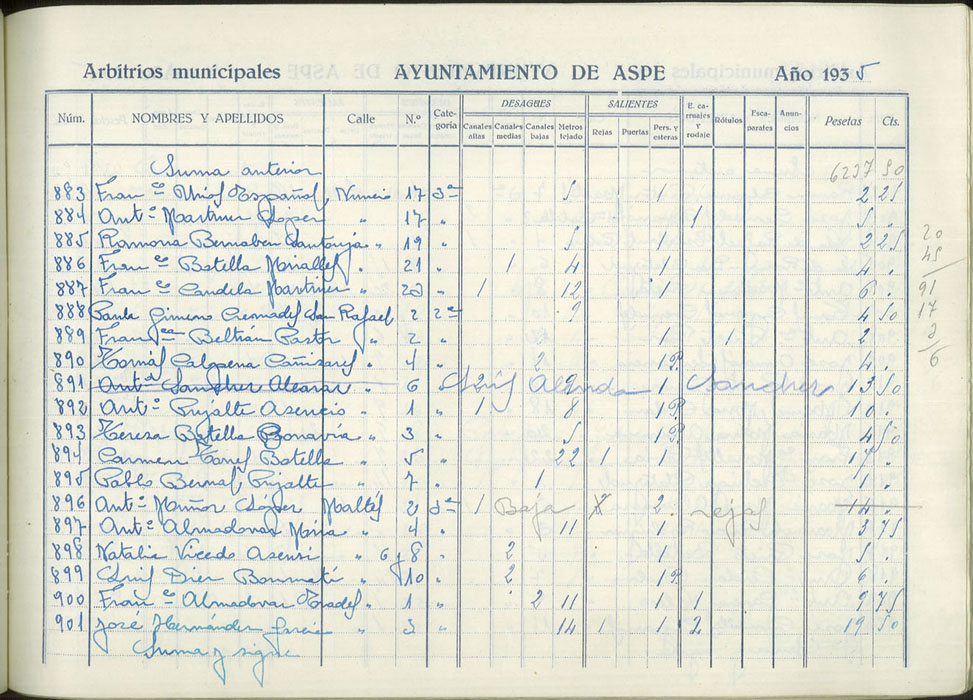 Arbitrios municipales AYUNTAMIENTO DE ASPE Año 1935
DESAGUES SALIENTES
Núm. NOMBRES Y APELLIDOS Calle N.º Categoría Canales altas Canales medias Canales bajas Metros tejado Rejas Puertas Pers. y esteras E. carruajes y rodaje Rótulos Escaparates Anuncios Pesetas Cts.
Suma anterior 6237 50
883 Fran.co Español Nuncio 17 3ª 5 1 2 25
884 Ant.º Martinez López " 17 " 1 5 .
885 Ramona Bernabeu Santonja " 19 " 5 1 2 25
886 Fran.co Botella Miralles " 21 " 1 4 1 4 .
887 Fran.co Candela Martinez " 23 " 1 12 1 6 .
888 Paula Gimeno Cremades San Rafael 2 2ª 9 4 50
889 Fran.ca Beltrán Pastor " 2 " 1 2 .
890 Tomás Calpena Cañizares " 4 " 2 1P. 4 .
891 Ant.ª Sanchez Alcaraz " 6 " 2 9 1 13 50
Luis Sanchez
892 Ant.º Pujalte Asencio " 1 " 1 8 1P. 10 .
893 Teresa Botella Bonavía " 3 " 5 1P. 4 50
894 Carmen Torres Botella " 5 " 22 1 1 17 .
895 Pablo Bernal Pujalte " 7 " 1 1 .
896 Ant.º Muñoz López Maltés 2 3ª 1 Baja X 2 rejas 14 .
897 Ant.º Almodovar Mira " 4 " 11 1 3 75
898 Natalia Vicedo Asensi " 6 y 8 " 2 1 5 .
899 Luis Diez Bonmatí " 10 " 2 1P. 6 .
900 Fran.co Almodovar Prades " 1 " 2 11 1 1 9 75
901 José Hernández García " 3 " 14 1 1 2 19 50
Suma y sigue
20
45
91
17
2
6